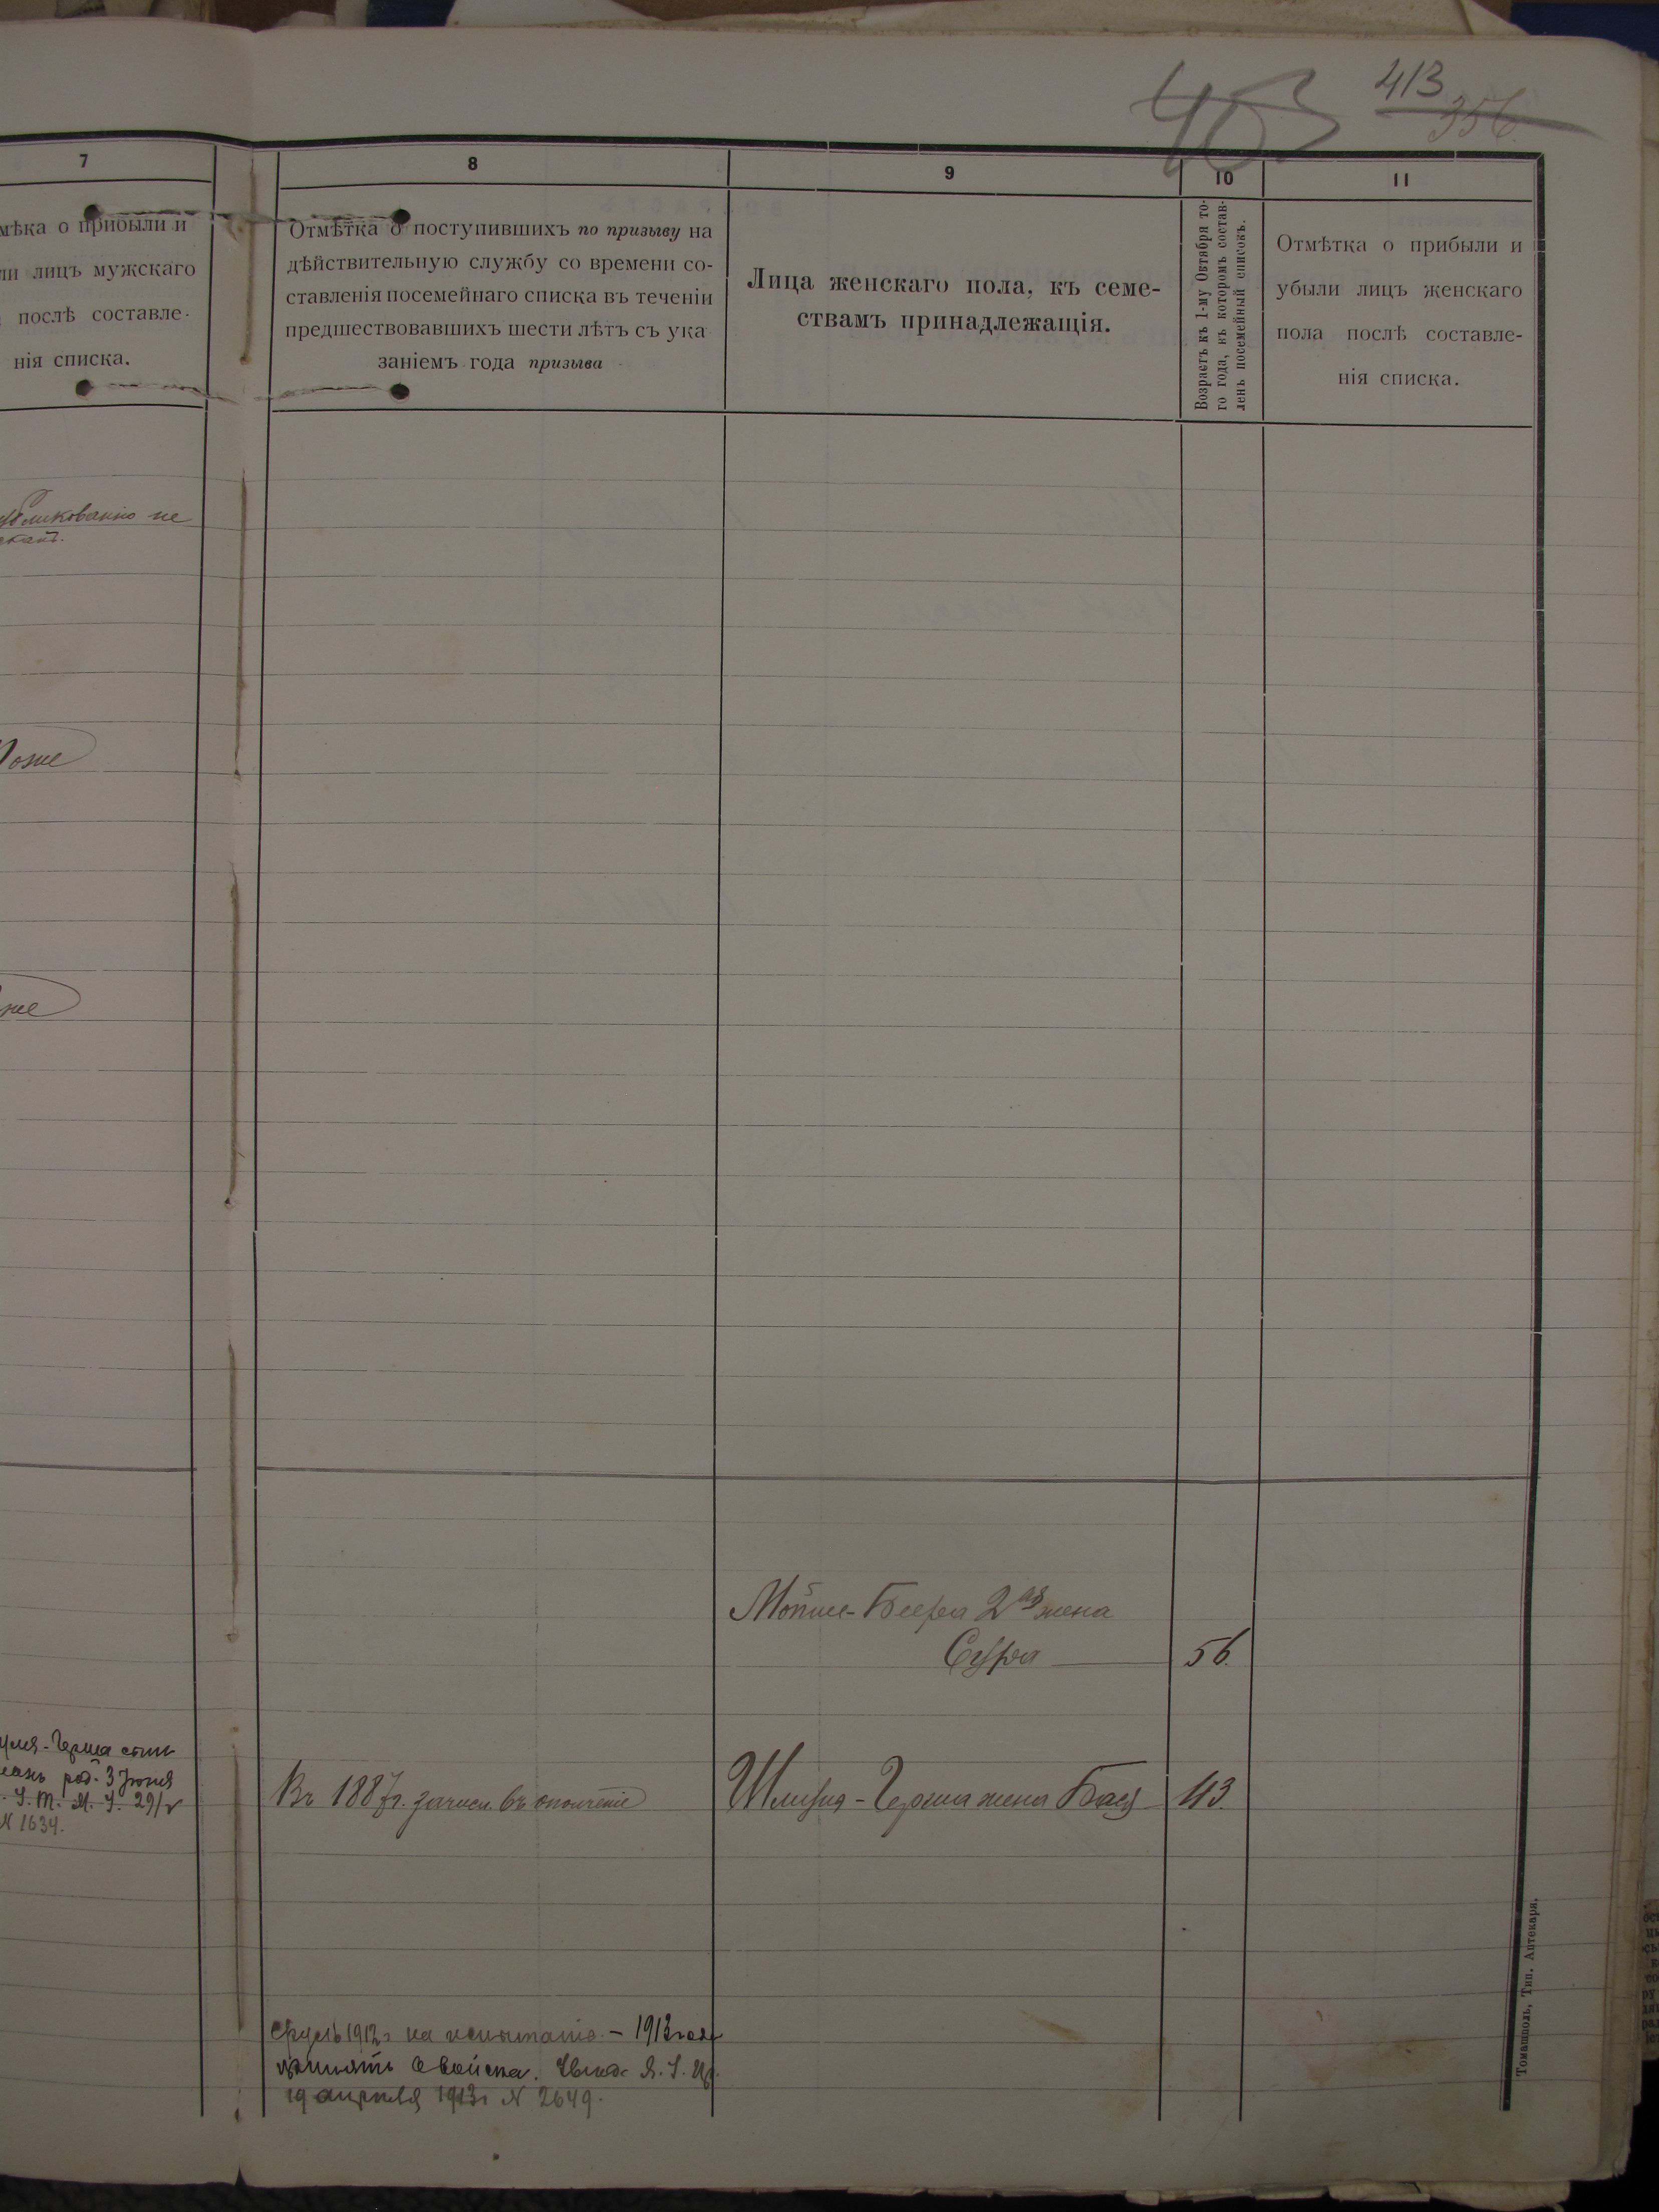 403 413
356
7
8
9
10
11
мѣка о прибыли и
ли лицъ мужскаго
послѣ составле-
нія списка.
Отмѣтка о поступившихъ по призыву на
дѣйствительную службу со времени со-
ставленія посемейнаго списка въ теченіи
предшествовавшихъ шести лѣтъ съ ука
заніемъ года призыва
Лица женскаго пола, къ семе-
ствамъ принадлежащія.
Возрастъ къ 1-му Октября то-
го года, въ которомъ состав-
ленъ посемейный списокъ.
Отмѣтка о прибыли и
убыли лицъ женскаго
пола послѣ составле-
нія списка.
не
же
Бера 2ая жена
Сура 56.
Герша
род. 3 Іюня
29/
N 1634.
Въ 1887 г. зачисл. въ ополченіе
Герша жена Бася 43.
1912 г на испытаніе - 1913 года
принятъ в войска.
19 апрѣля 1913 г N 2649.
Томашполь, Тип. Аптекаря.